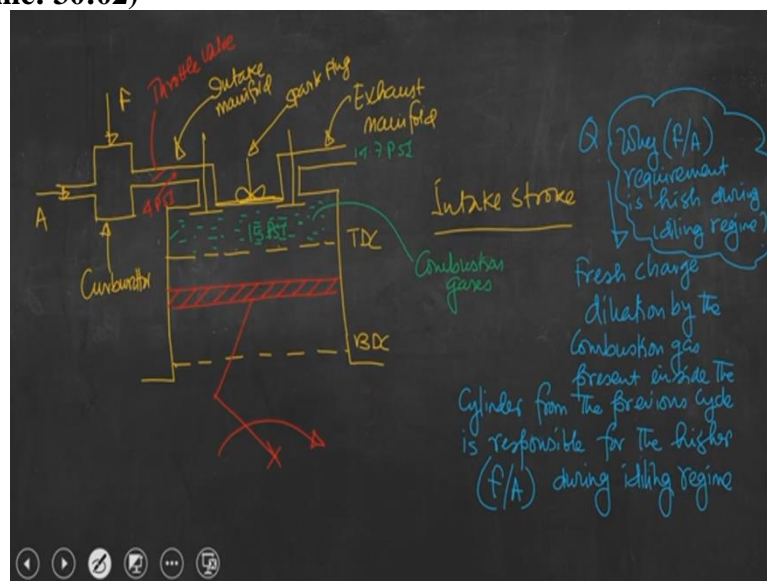 Throttle valve
F
Intake
manifold
spark plug
Exhaust
manifold
14.7 PSI
A
4 PSI
15 PSI
Intake stroke
TDC
Combustion
gases
Carburettor
BDC
Q Why (F/A)
requirement
is high during
idiling regime?
Fresh charge
dilution by the
Combustion gas
present inside the
Cylinder from the previous cycle
is responsible for the higher
(F/A) during idiling regime